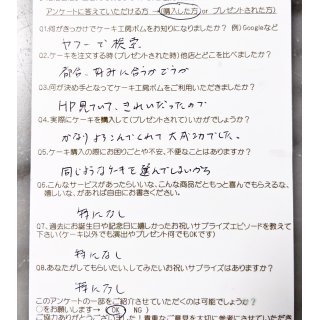 アンケートに答えていただける方 →(購入した方)or プレゼントされた方)
Q1.何がきっかけでケーキ工房ボムをお知りになりましたか? 例)Googleなど
ヤフーで検索
Q2.ケーキを注文する時(プレゼントされた時)他店とどこを比べましたか?
都合、好みに合うかどうか
Q3.何が決め手となってケーキ工房ボムをご利用いただきましたか?
HP見ていて、きれいだったので
Q4.実際にケーキを購入して(プレゼントされて)いかがでしょうか?
かなりよろこんでくれて大成功でした。
Q5.ケーキ購入の際にお困りごとや不安、不便なことはありますか?
同じようなケーキを選んでしまいがち
Q6.こんなサービスがあったらいいな、こんな商品だともっと喜んでもらえるな、
嬉しいな、があれば自由にお書きください。
特になし
Q7.過去にお誕生日や記念日に嬉しかったお祝いサプライズエピソードを教えて
下さい(ケーキ以外でも演出やプレゼント何でもOKです)
特になし
Q8.あなたがしてもらいたい、してみたいお祝いサプライズはありますか?
特になし
このアンケートの一部をご紹介させていただくのは可能でしょうか?
○をお願いします→ (OK) NG )
ご協力ありがとうございました!貴重なご意見を大切に参考にさせていただき